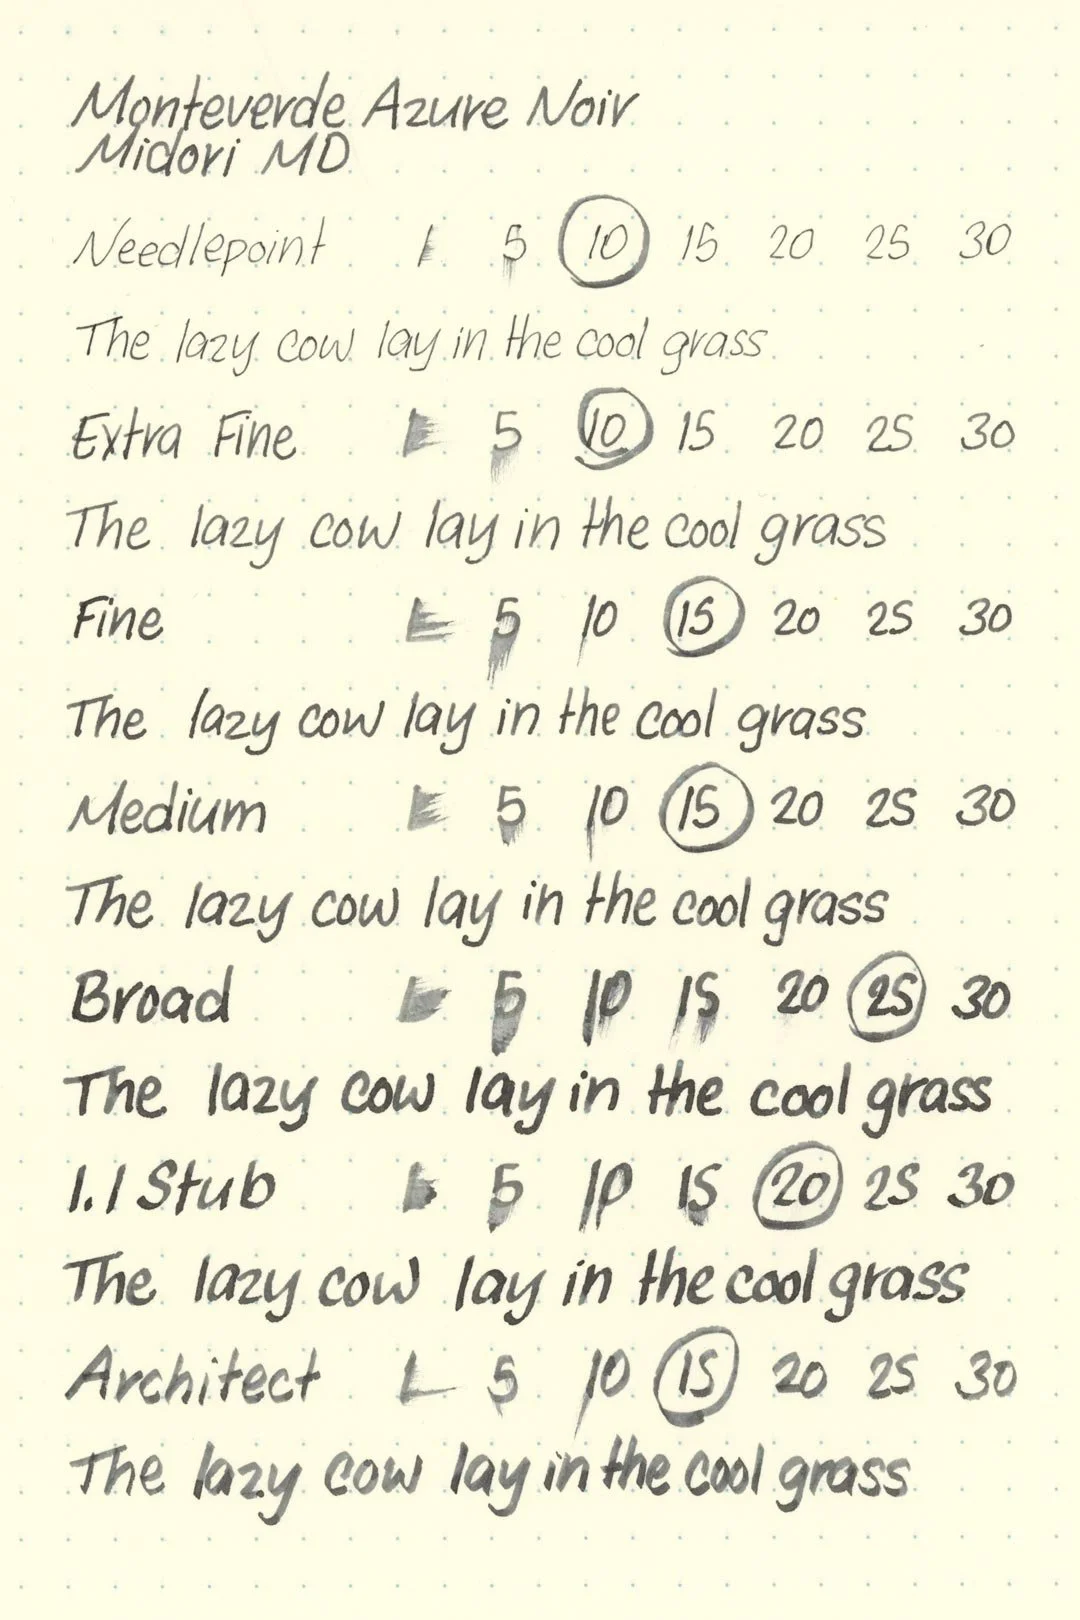 Monteverde Azure Noir
Midori MD
Needlepoint 1 5 10 15 20 25 30
The lazy cow lay in the cool grass
Extra Fine 1 5 10 15 20 25 30
The lazy cow lay in the cool grass
Fine 1 5 10 15 20 25 30
The lazy cow lay in the cool grass
Medium 1 5 10 15 20 25 30
The lazy cow lay in the cool grass
Broad 1 5 10 15 20 25 30
The lazy cow lay in the cool grass
1.1 Stub 1 5 10 15 20 25 30
The lazy cow lay in the cool grass
Architect 1 5 10 15 20 25 30
The lazy cow lay in the cool grass